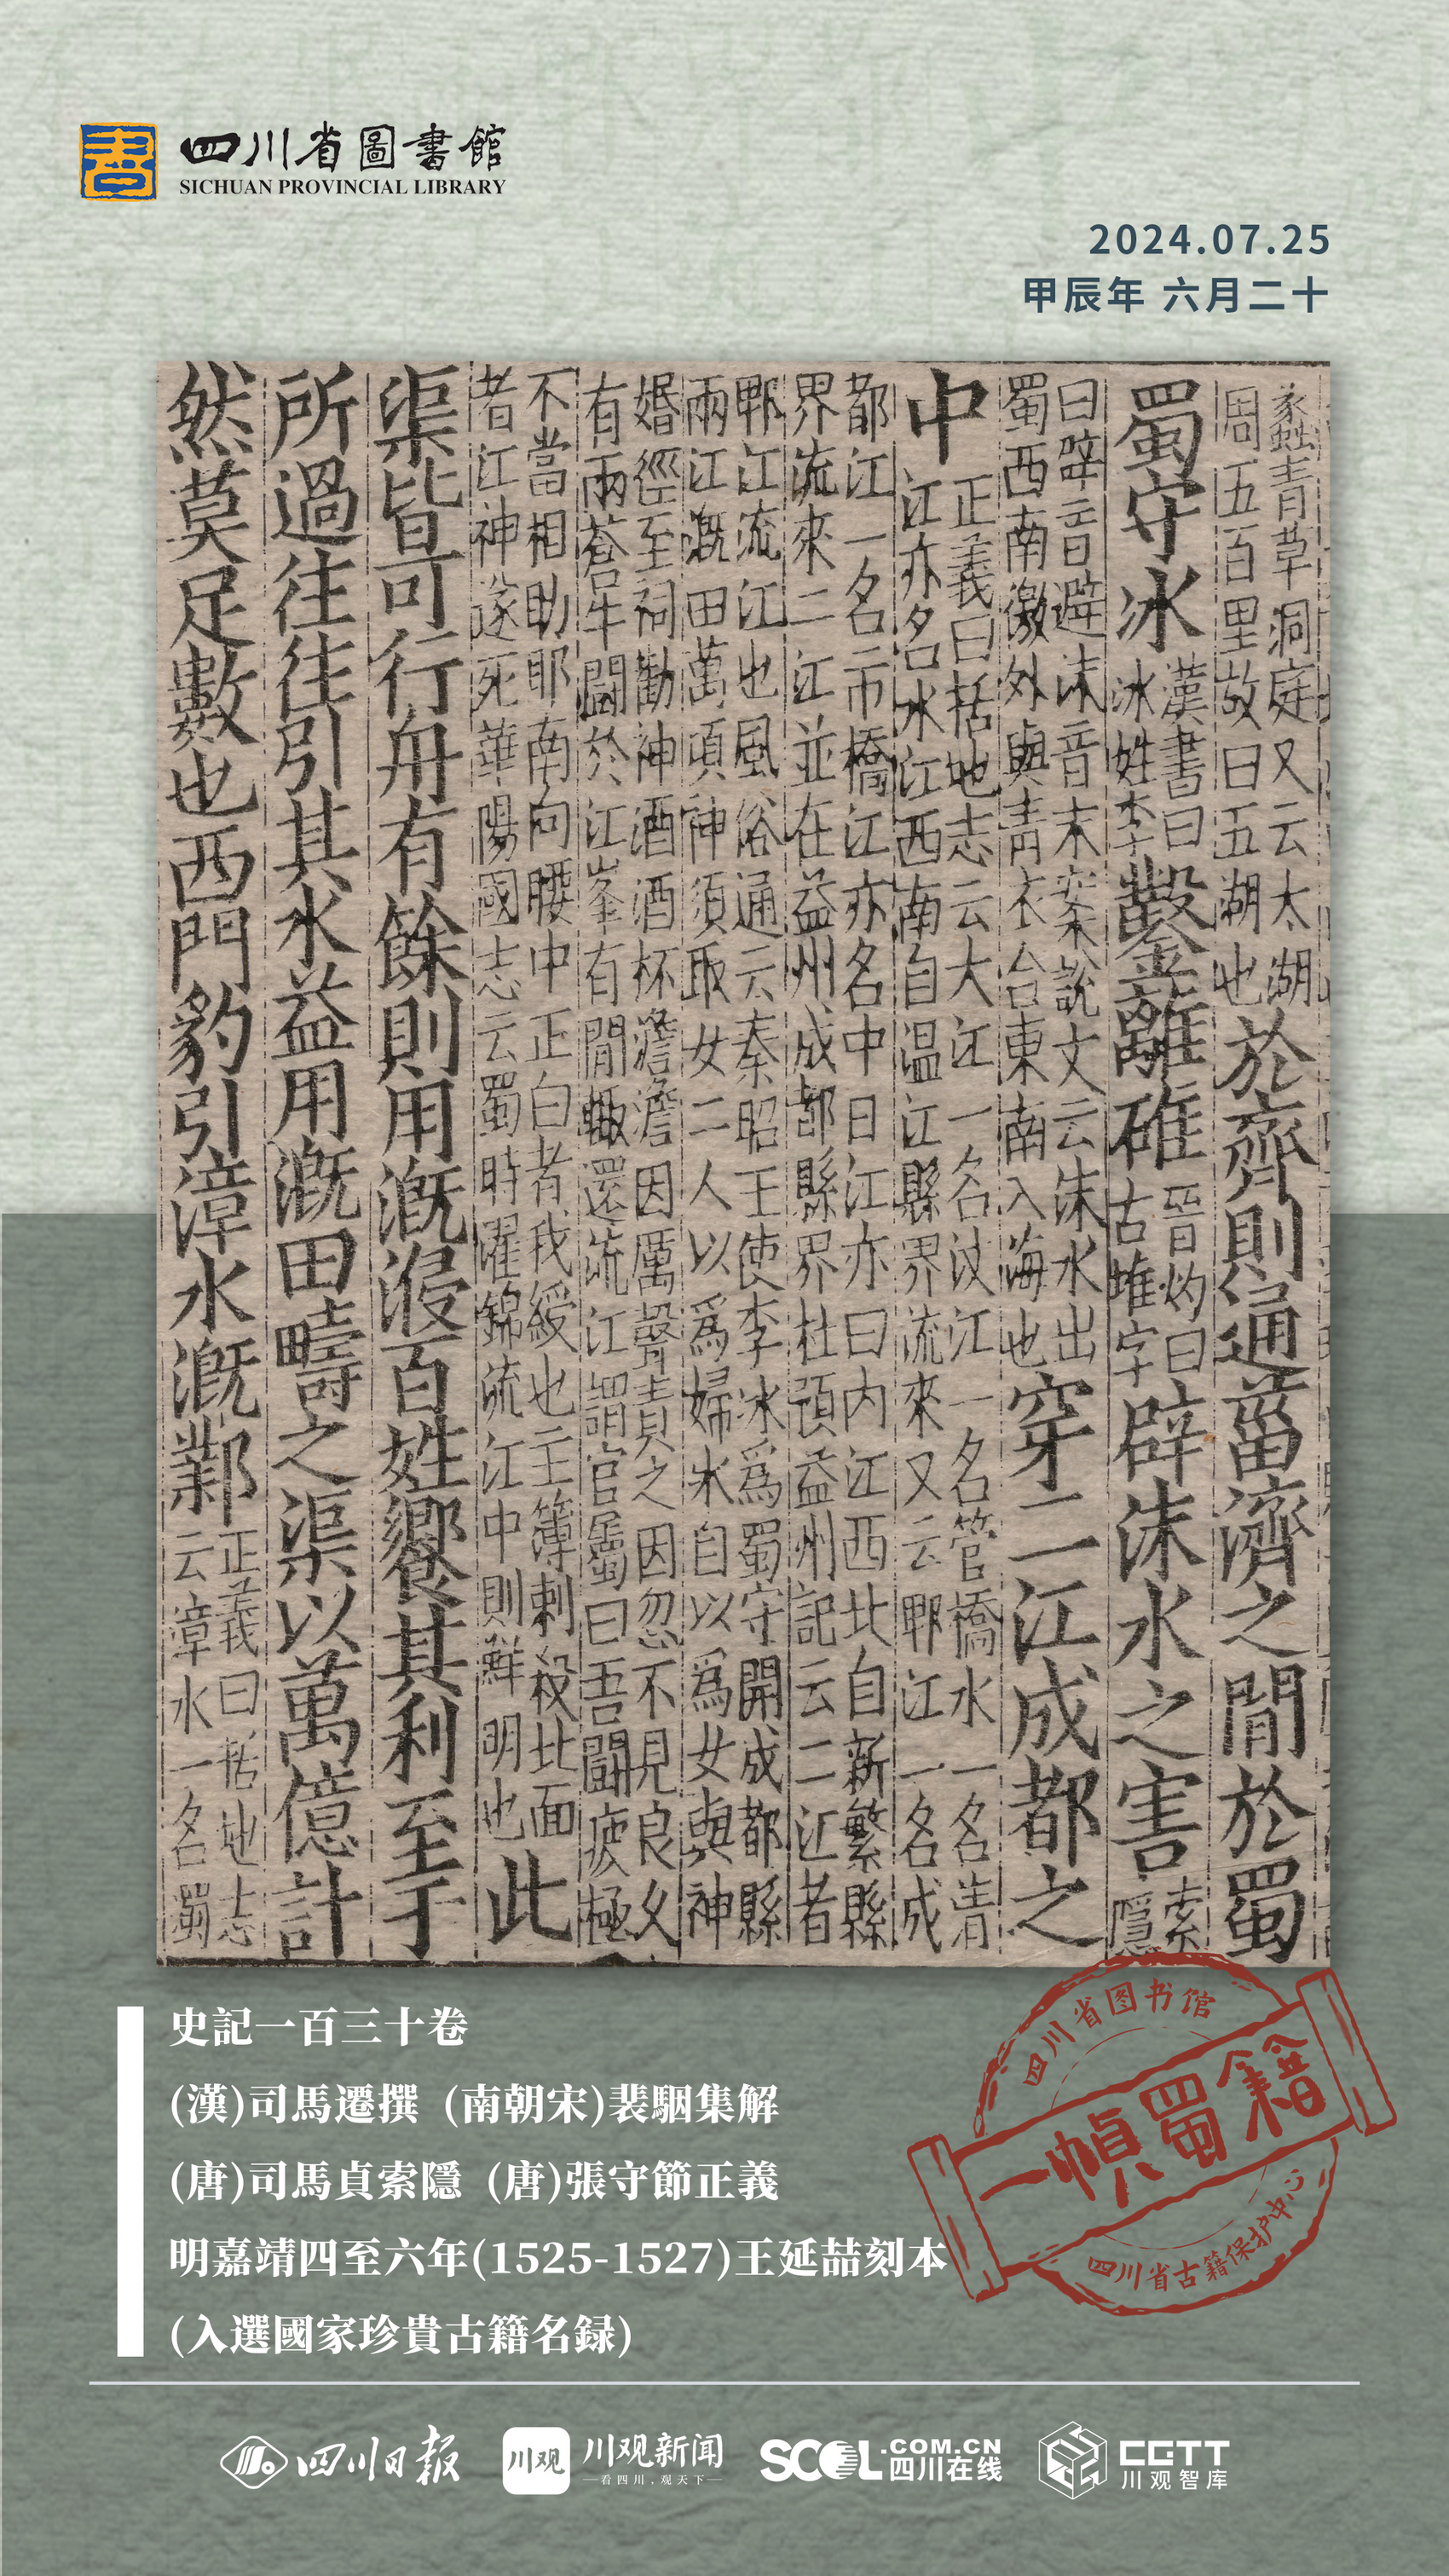 四川省圖書館
SICHUAN PROVINCIAL LIBRARY
2024.07.25
甲辰年 六月二十
蠡青草洞庭又云太湖
周五百里故曰五湖也
於齊則通菑濟之間於蜀
蜀守冰
漢書曰
冰姓李
鑿離碓
晉灼曰
古堆字
辟沫水之害
索
隱
曰辟音避沫音末案說文云沫水出
蜀西南徼外與青衣合東南入海也
穿二江成都之
中
正義曰括地志云大江一名汶江一名管橋水一名清
江亦名水江西南自温江縣界流來又云郫江一名成
都江一名市橋江亦名中日江亦曰内江西北自新繁縣
界流來二江並在益州成都縣界杜預益州記云二江者
郫江流江也風俗通云秦昭王使李冰爲蜀守開成都縣
兩江溉田萬頃神須取女二人以爲婦氷自以爲女與神
婚徑至祠勸神酒酒杯澹澹因厲聲責之因忽不見良久
有兩蒼牛鬭於江岸有閒輒還流江謂官屬曰吾鬭疲極
不當相助耶南向腰中正白者我綬也主簿刺殺北面
者江神遂死華陽國志云蜀時濯錦流江中則鮮明也
此
渠皆可行舟有餘則用溉浸百姓饗其利至于
所過往往引其水益用溉田疇之渠以萬億計
然莫足數也西門豹引漳水溉鄴
正義曰括地志
云漳水一名蜀
史記一百三十卷
(漢)司馬遷撰 (南朝宋)裴駰集解
(唐)司馬貞索隱 (唐)張守節正義
明嘉靖四至六年(1525-1527)王延喆刻本
(入選國家珍貴古籍名録)
四川省图书馆
一幀蜀籍
四川省古籍保护中心
四川日报
川观
川观新闻
看四川，观天下
SCOL.COM.CN
四川在线
CGTT
川观智库